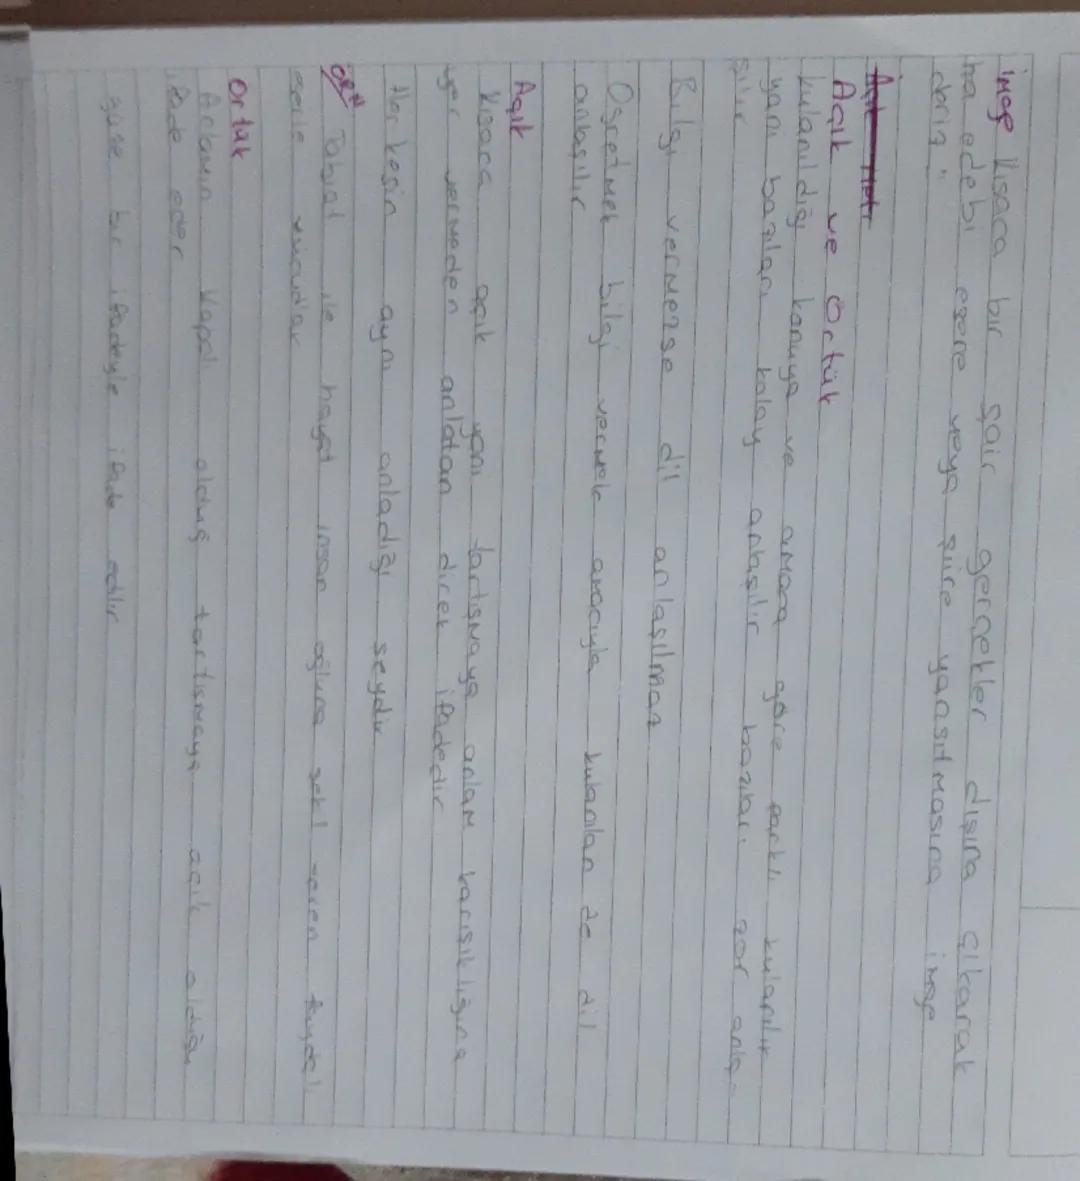 imge Kısaca bir şair gerçekler dışına çıkarak
ha edebi esere veya şiire yansıtmasına imge
denir"
Açık ve Örtük
kulanıldığı konuya ve amaca göre farklı kulanılır
yani bazıları kolay anlaşılır bazıları zor anla-
şılır
Bilgi vermezse dil anlaşılmaz
Öğretmek bilgi vermek amacıyla kulanılan de dil
anlaşılır
Açık
Kısaca açık yani tartışmaya anlam karışıklığına
yer vermeden anlatan direk ifadedir
Her kesin aynı anladığı seydir
ÖR// Tabiat ile hayat insan oğluna şekil veren
Ortük
Anlamın Kapalı olduğ tartısmaya açık olduğu
ifade eder
bir ifadeyle ifade edilir